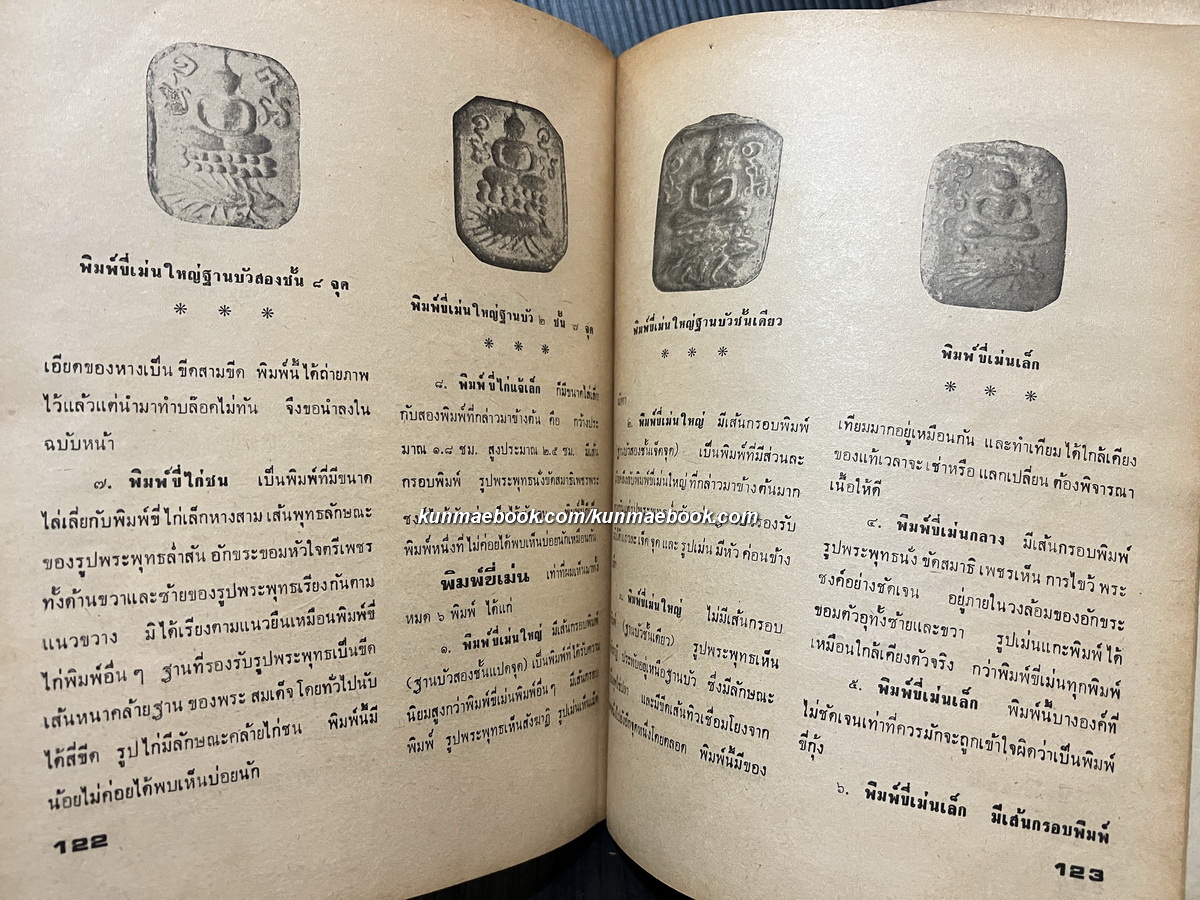 พิมพ์ขี่เม่นใหญ่ฐานบัวสองชั้น ๘ จุด
* * *
เอียดของหางเป็น ขีดสามขีด พิมพ์นี้ ได้ถ่ายภาพ
ไว้แล้วแต่นำมาทำบล๊อคไม่ทัน จึงขอนำลงใน
ฉบับหน้า
๗. พิมพ์ขี่ไก่ชน เป็นพิมพ์ที่มีขนาด
ไล่เลี่ยกับพิมพ์ขี่ไก่เล็กหางสาม เส้นพุทธลักษณะ
ของรูปพระพุทธล่ำสัน อักขระขอมหัวใจตรีเพชร
ทั้งด้านขวาและซ้ายของรูปพระพุทธเรียงกันตาม
แนวขวาง มิได้เรียงตามแนวยืนเหมือนพิมพ์ขี่
ไก่พิมพ์อื่น ๆ ฐานที่รองรับรูปพระพุทธเป็นขีด
เส้นหนาคล้ายฐาน ของพระ สมเด็จ โดยทั่วไปนับ
ได้สี่ขีด รูปไก่มีลักษณะคล้ายไก่ชน พิมพ์นี้มี
น้อยไม่ค่อยได้พบเห็นบ่อยนัก
122
พิมพ์ขี่เม่นใหญ่ฐานบัว ๒ ชั้น ๗ จุด
* * *
๘. พิมพ์ขี่ไก่แจ้เล็ก ก็มีขนาดไล่เลี่ย
กับสองพิมพ์ที่กล่าวมาข้างต้น คือ กว้างประ
มาณ ๑.๘ ซม. สูงประมาณ ๒.๕ ซม. มีเส้น
กรอบพิมพ์ รูปพระพุทธนั่งขัดสมาธิเพชรพระ
kunmaebook.com/kunmaebook.com
พิมพ์หนึ่งที่ไม่ค่อยได้พบเห็นบ่อยนักเหมือนกัน
พิมพ์ขี่เม่น เท่าที่ผมเห็นมาทั้ง
หมด ๖ พิมพ์ ได้แก่
๑. พิมพ์ขี่เม่นใหญ่ มีเส้นกรอบพิมพ์
(ฐานบัวสองชั้นแปดจุด) เป็นพิมพ์ที่ได้รับความ
นิยมสูงกว่าพิมพ์ขี่เม่นพิมพ์อื่นๆ มีเส้นกรอบ
พิมพ์ รูปพระพุทธเห็นสังฆาฏิ รูปเม่นเห็นเม็ด
พิมพ์ขี่เม่นใหญ่ฐานบัวชั้นเดียว
* * *
๒. พิมพ์ขี่เม่นใหญ่ มีเส้นกรอบพิมพ์
(ฐานบัวสองชั้นเจ็ดจุด) เป็นพิมพ์ที่มีส่วนละ
พิมพ์ขี่เม่นใหญ่ ที่กล่าวมาข้างต้นมาก
รองรับ
เจ็ด จุด และ รูปเม่น มีหัว ค่อนข้าง
พิมพ์ขี่เม่นใหญ่ ไม่มีเส้นกรอบ
(ฐานบัวชั้นเดียว) รูปพระพุทธเห็น
ประทับอยู่เหนือฐานบัว ซึ่งมีลักษณะ
และมีขีดเส้นทิวเชื่อมโยงจาก
จุดหนึ่งโดยตลอด พิมพ์นี้มีของ
พิมพ์ขี่เม่นเล็ก
* * *
เทียมมากอยู่เหมือนกัน และทำเทียม ได้ใกล้เคียง
ของแท้เวลาจะ เช่าหรือ แลกเปลี่ยน ต้องพิจารณา
เนื้อให้ดี
๔. พิมพ์ขี่เม่นกลาง มีเส้นกรอบพิมพ์
รูปพระพุทธนั่ง ขัดสมาธิ เพชรเห็น การไขว้ พระ
ชงค์อย่างชัดเจน อยู่ภายในวงล้อมของอักขระ
ขอมตัวอุทั้งซ้ายและขวา รูปเม่นแกะพิมพ์ ได้
เหมือนใกล้เคียงตัวจริง กว่าพิมพ์ขี่เม่นทุกพิมพ์
๕. พิมพ์ขี่เม่นเล็ก พิมพ์นี้บางองค์ที่
ไม่ชัดเจนเท่าที่ควรมักจะถูกเข้าใจผิดว่าเป็นพิมพ์
ขี่กุ้ง
๖. พิมพ์ขี่เม่นเล็ก มีเส้นกรอบพิมพ์
123